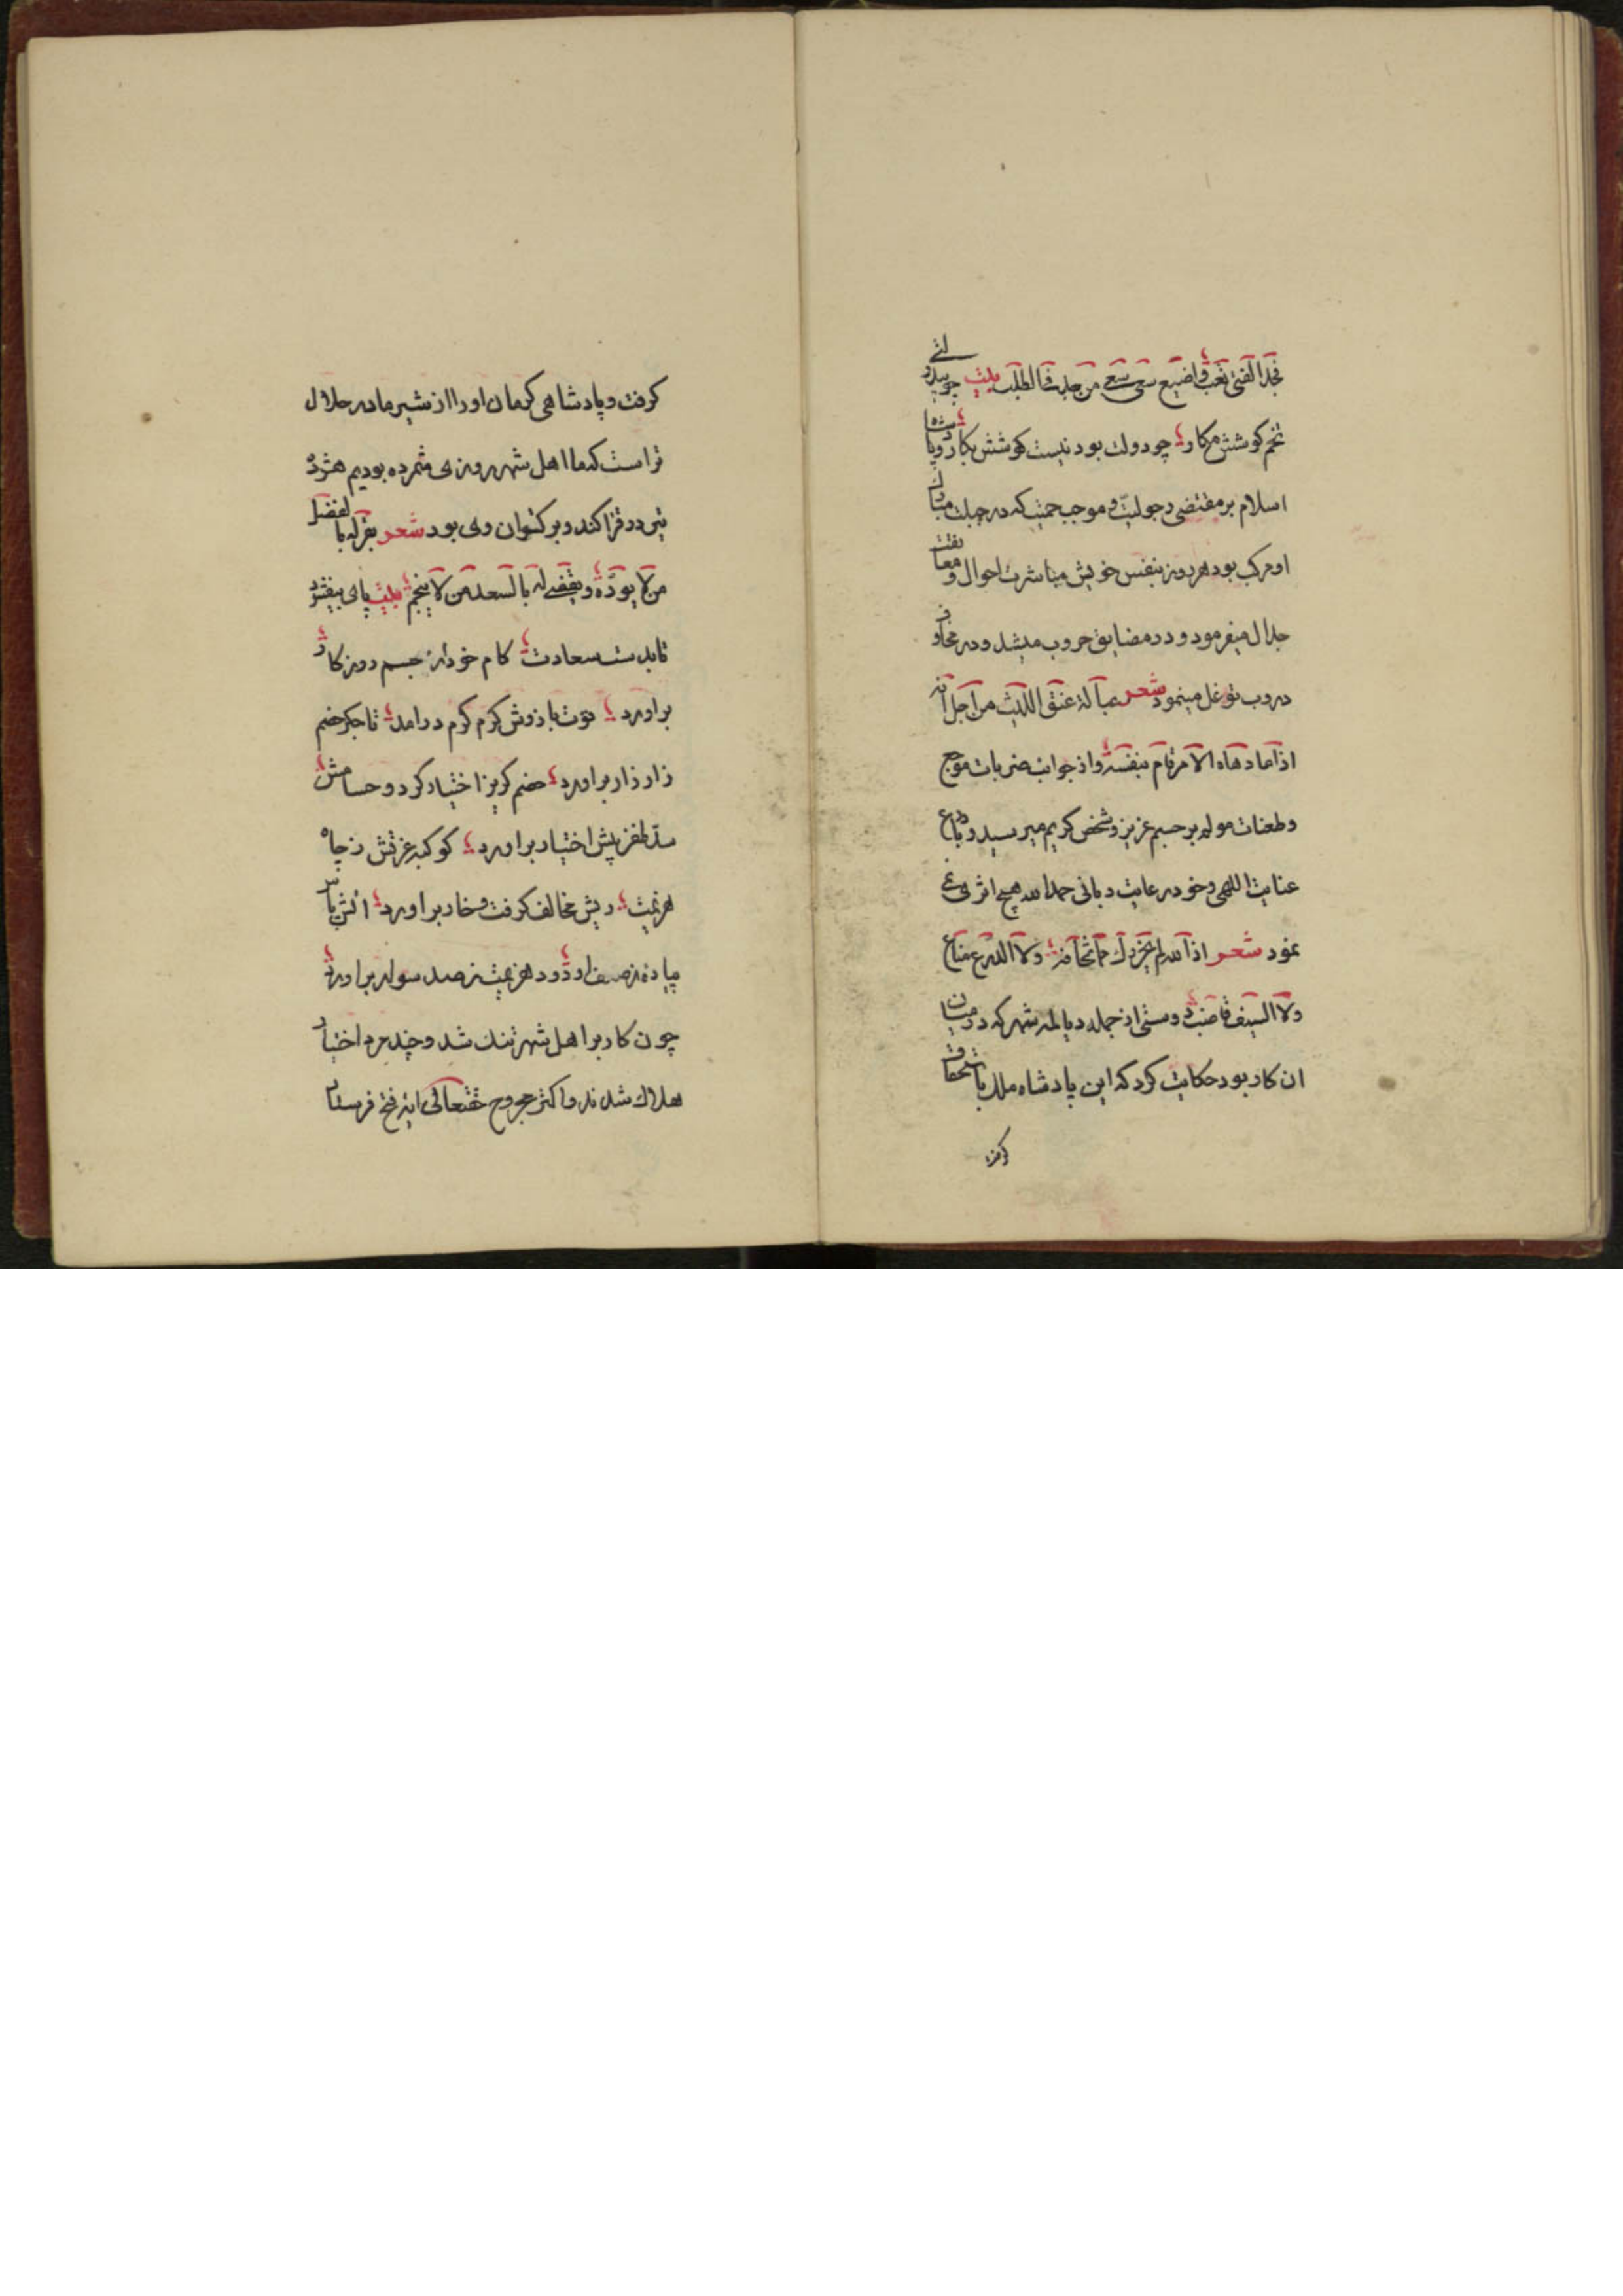 فجد الفتی تعب واضیع سعی سعی من جد فی الطلب بیت چو بیدولتی
تخم کوشش مکار چو دولت بود نیست کوشش بکار و پادشاه
اسلام بر مقتضی رجولیت و موجب حمیت که در جبلت مبارک
او مرکب بود هر روز بنفس خویش مباشرت احوال و معانقت
جدال میفرمود و در مضایق حروب میشد و در مخاوف
دروب توغل مینمود شعر عبالة عنق اللیث من اجل انه
اذا ما دهاه الامر قام بنفسه و از جوانب ضربات موجع
و طعنات مولم بر جسم عزیز و شخص کریم میرسید و بادرع
عنایت اللهی و خود رعایت ربانی حمدا لله هیچ اثر نمی
نمود شعر اذا الله لم یحرزک مما تخافه ولا الدرع مناع
ولا السیف قاضب و مستی از جمله دیالمه شهر که در میان
ان کار بود حکایت کرد که این پادشاه ملک باستحقاق
کرفت
کرفت و پادشاهی کرمان او را از شیر مادر حلال
تر است که ما اهل شهر روزی شمرده بودیم هژده
تیر در قزاکند و برکستوان وی بود شعر یقر له بالفضل
من لا یوده و یقضی له بالسعد من لا ینجم بیت پای بیفشرد
تا بدست سعادت کام خود از جسم روزکار
براورد قوت بازوش کرم کرم درامد تا جکر خصم
زار زار براورد خصم کریز اختیار کرد و حسامش
سد ظفر پیش اختیار براورد کوکبه عزتش ز چاه
هزیمت ریش مخالف کرفت و خار براورد اتش باس
پیاده ز صف او دود هزیمت ز صد سوار براورد
چون کار بر اهل شهر تنک شد و چند مرد اختیار
هلاک شدند و اکثر مجروح حقتعالی ایه فتح فرستاد